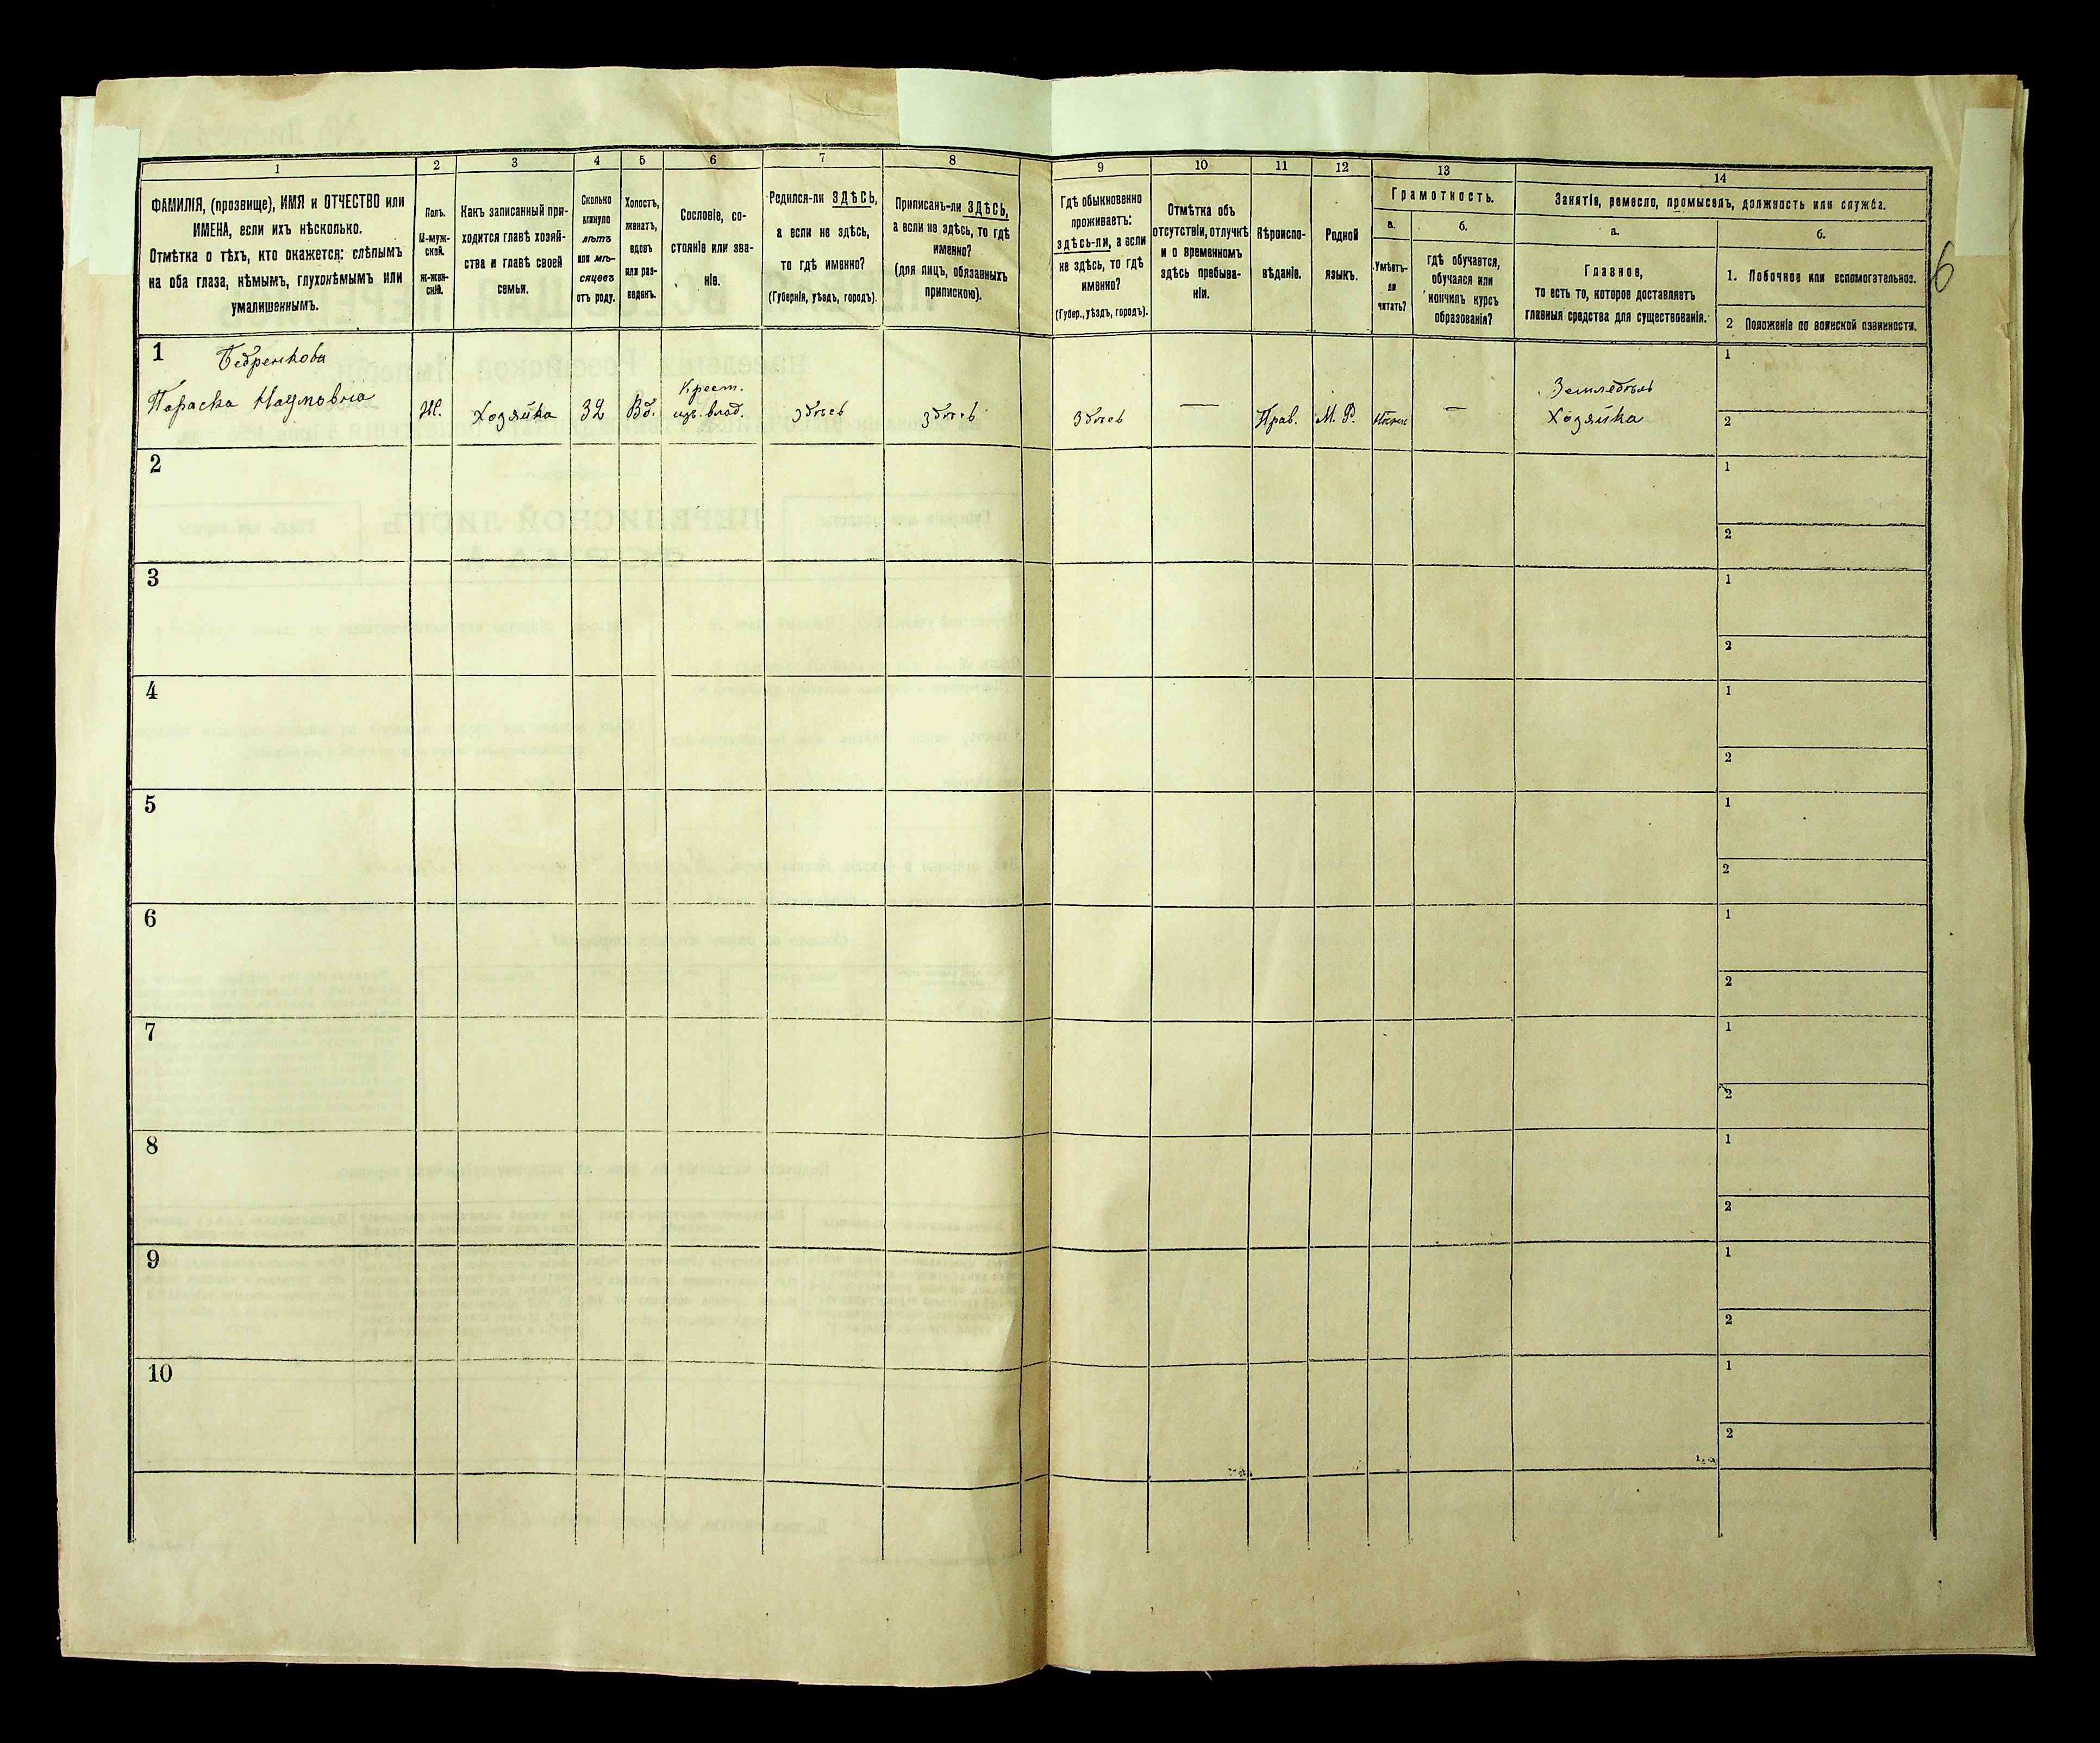 6
1
2
3
4
5
6
7
8
9
10
11
12
13
14
ФАМИЛІЯ, (прозвище), ИМЯ и ОТЧЕСТВО или
ИМЕНА, если ихъ нѣсколько.
Отмѣтка о тѣхъ, кто окажется: слѣпымъ
на оба глаза, нѣмымъ, глухонѣмымъ или
умалишеннымъ.
Полъ.
М-муж-
ской.
Ж-жен-
скій.
Какъ записанный при-
ходится главѣ хозяй-
ства и главѣ своей
семьи.
Сколько
минуло
лѣтъ
или мѣ-
сяцевъ
отъ роду.
Холостъ,
женатъ,
вдовъ
или раз-
веденъ.
Сословіе, со-
стояніе или зва-
ніе.
Родился-ли ЗДѢСЬ,
а если не здѣсь,
то гдѣ именно?
(Губернія, уѣздъ, городъ).
Приписанъ-ли ЗДѢСЬ,
а если не здѣсь, то гдѣ
именно?
(для лицъ, обязанныхъ
припискою).
Гдѣ обыкновенно
проживаетъ:
здѣсь-ли, а если
не здѣсь, то гдѣ
именно?
(Губер., уѣздъ, городъ).
Отмѣтка объ
отсутствіи, отлучкѣ
и о временномъ
здѣсь пребыва-
ніи.
Вѣроиспо-
вѣданіе.
Родной
языкъ.
Грамотность.
а.
Умѣетъ-
ли
читать?
б.
гдѣ обучается,
обучался или
кончилъ курсъ
образованія?
Занятіе, ремесло, промыселъ, должность или служба.
а.
Главное,
то есть то, которое доставляетъ
главныя средства для существованія.
б.
1. Побочное или вспомогательное.
2 Положеніе по воинской повинности.
1
Бедренкова
Параска Наумовна
Ж.
Хозяйка
32
Вд.
Крест.
изъ влад.
здѣсь
здѣсь
Здѣсь
—
Прав.
М. Р.
—
Земледѣліе
Хозяйка
1
2
2
1
2
3
1
2
4
1
2
5
1
2
6
1
2
7
1
2
8
1
2
9
1
2
10
1
2